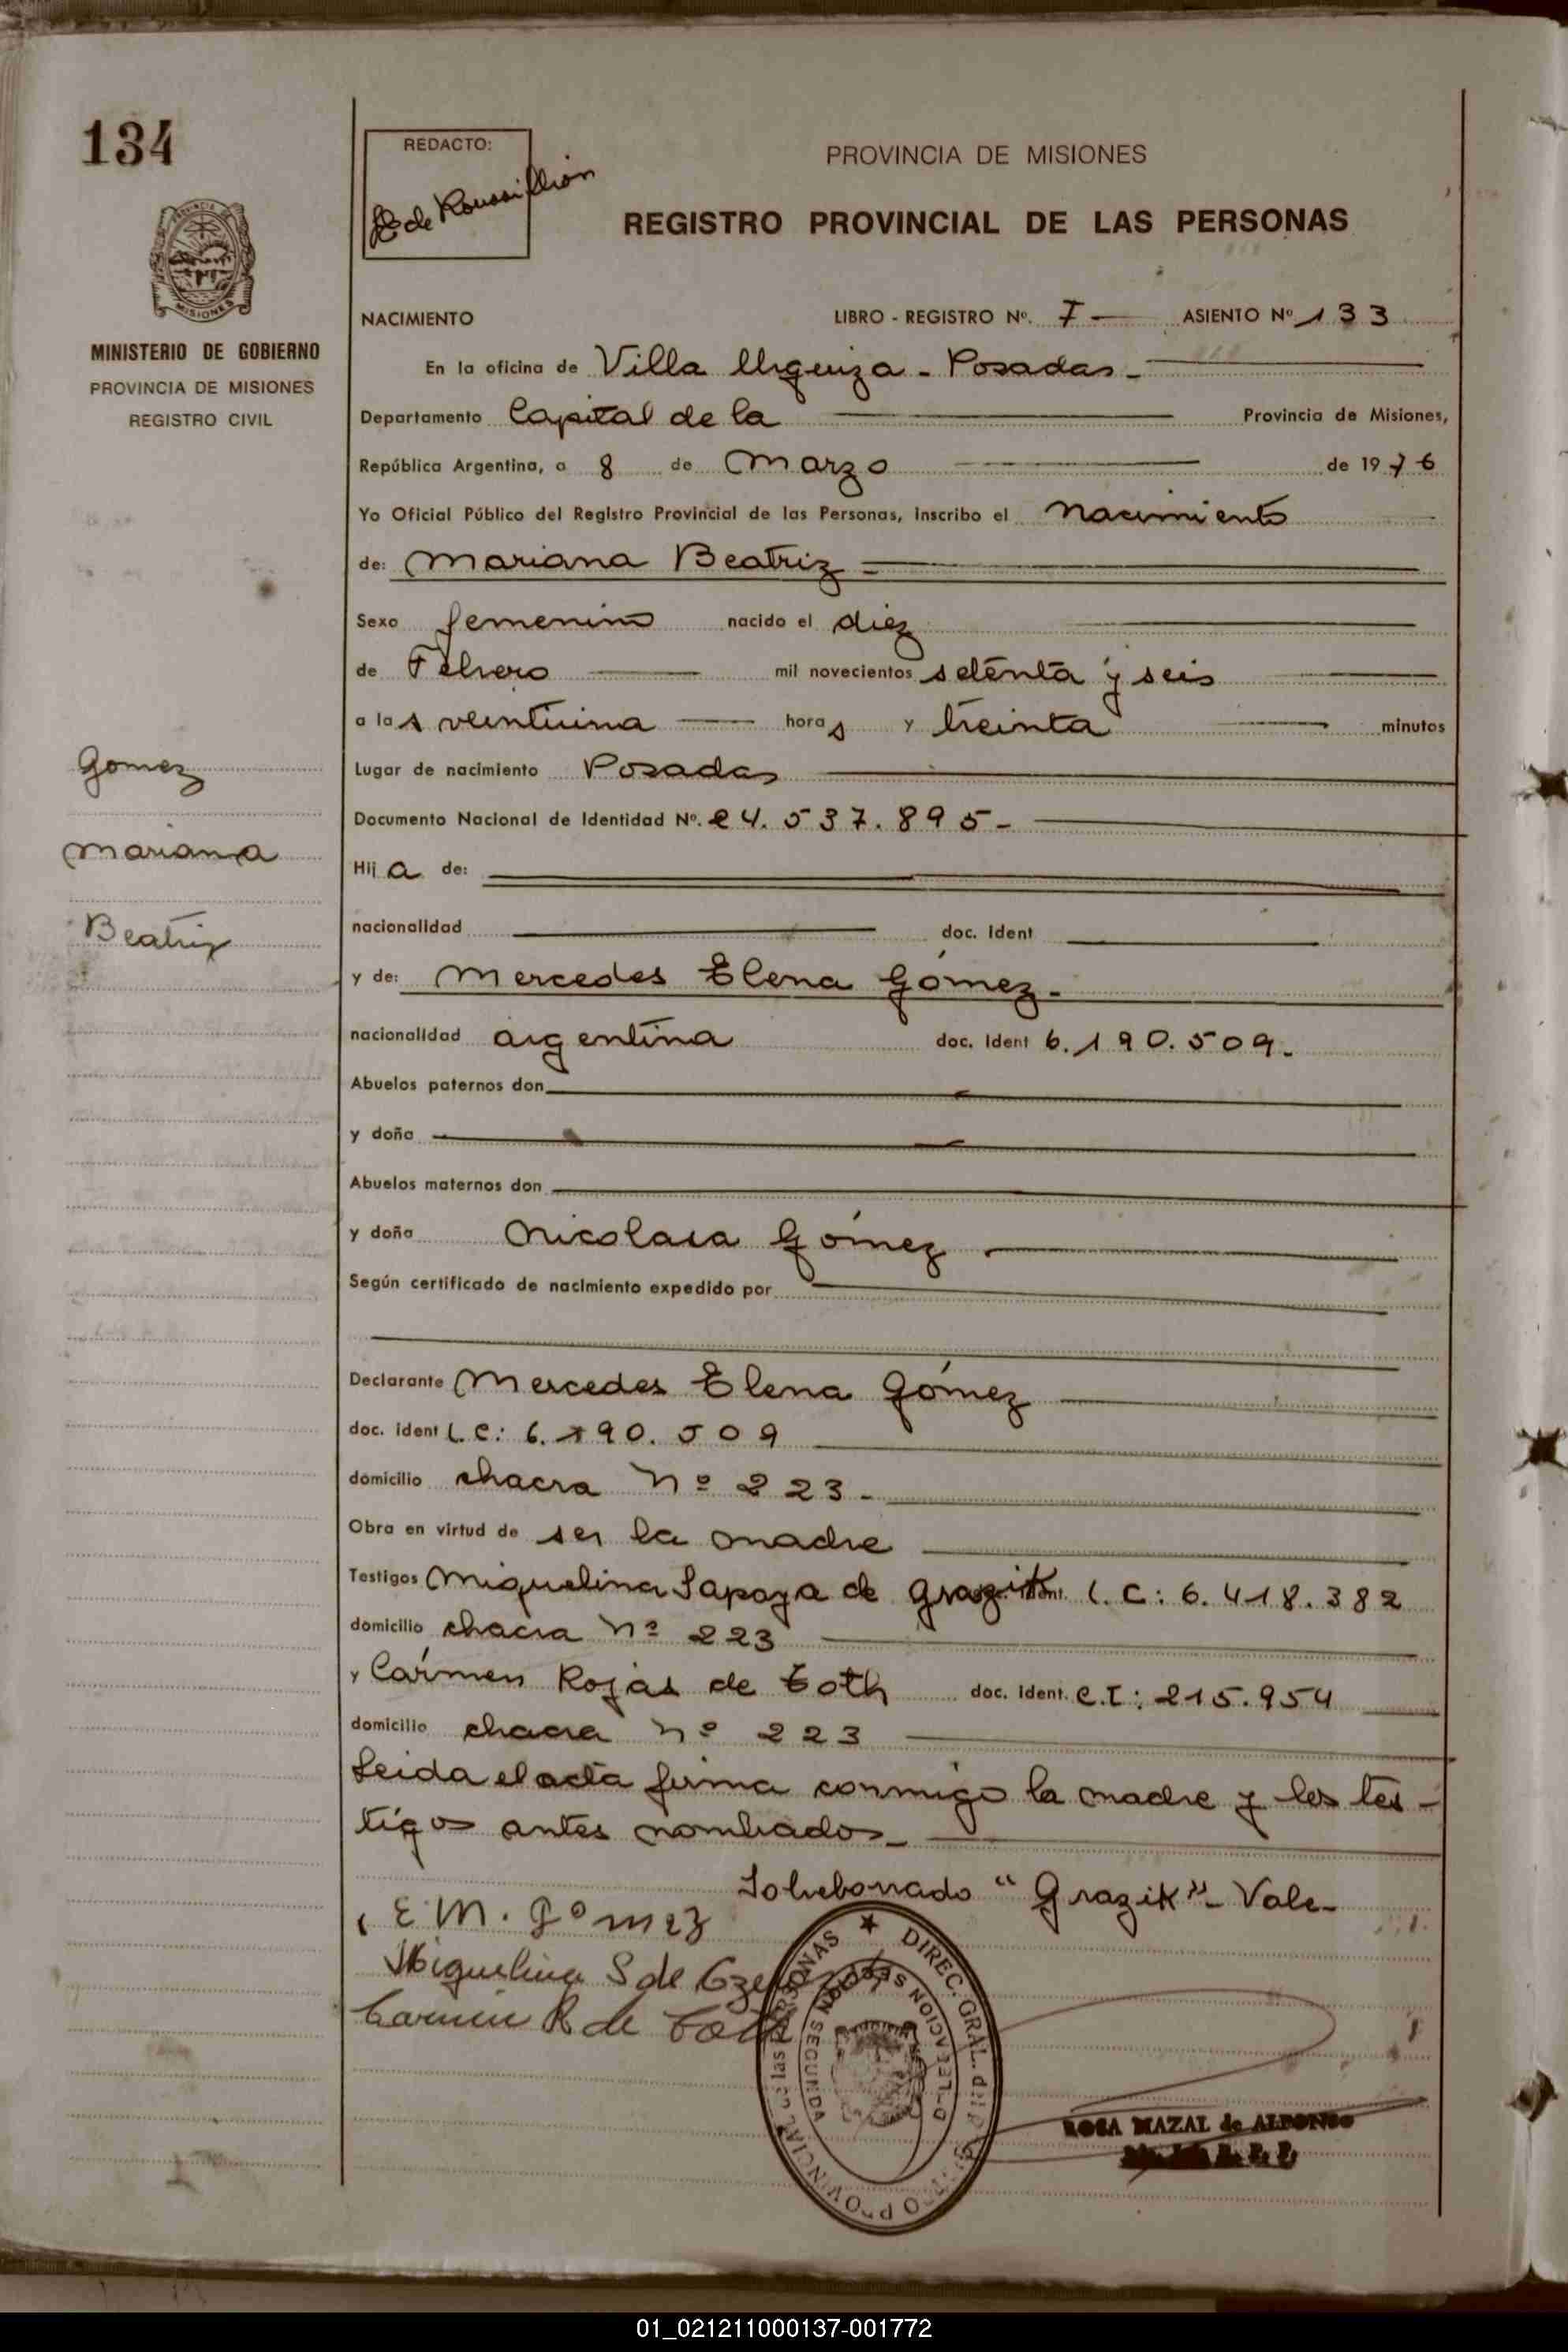 134
REDACTO:
de Roussillion
PROVINCIA DE MISIONES
REGISTRO PROVINCIAL DE LAS PERSONAS
MISIONES
MINISTERIO DE GOBIERNO
PROVINCIA DE MISIONES
REGISTRO CIVIL
NACIMIENTO LIBRO - REGISTRO Nº. 7 — ASIENTO Nº 133
En la oficina de Villa Urquiza - Posadas -
Departamento Capital de la Provincia de Misiones,
República Argentina, a 8 de Marzo de 1976
Yo Oficial Público del Registro Provincial de las Personas, inscribo el nacimiento
de: Mariana Beatriz =
Sexo femenino nacido el diez
de Febrero mil novecientos setenta y seis
a las veintiuna horas y treinta minutos
Gomez
Lugar de nacimiento Posadas
Documento Nacional de Identidad Nº. 24.537.895-
Mariana
Hija de:
Beatriz
nacionalidad doc. ident
y de: Mercedes Elena Gómez -
nacionalidad argentina doc. ident 6.190.509.
Abuelos paternos don
y doña
Abuelos maternos don
y doña Nicolasa Gómez
Según certificado de nacimiento expedido por
Declarante Mercedes Elena Gómez
doc. ident L.C: 6.190.509
domicilio chacra Nº 223 -
Obra en virtud de ser la madre
Testigos Miguelina Sapaya de Grazik ident. L.C: 6.418.382
domicilio chacra Nº 223
y Carmen Rojas de Toth doc. ident. C.I: 215.954
domicilio chacra Nº 223
Leida el acta firma conmigo la madre y los tes-
tigos antes nombados -
Sobreborrado "Grazik" - Vale -
E M. Gomez
Miguelina S de
Carmen R de Toth
DIREC. GRAL. del PROVINCIAL de las PERSONAS
DELEGACION SEGUNDA
ROSA MAZAL de ALFONSO
01_021211000137-001772